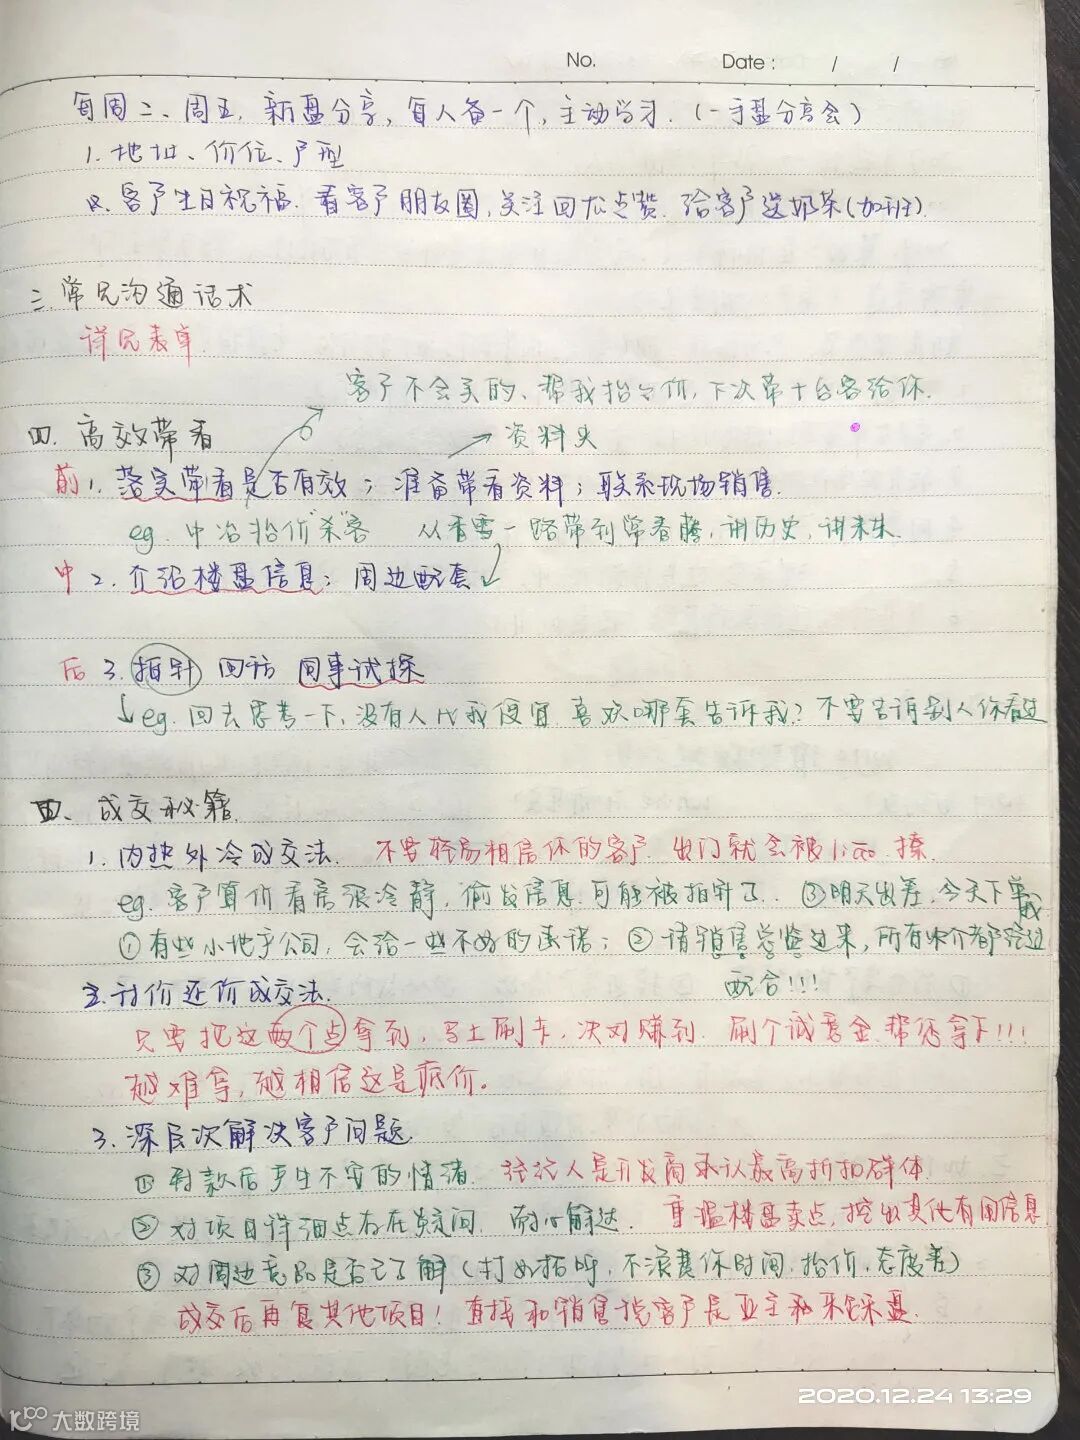 No.
Date: / /
每周二、周五,新盘分享,每人备一个,主动学习.(一手盘分享会)
1.地址、价位、户型
2.客户生日祝福.看客户朋友圈,关注回龙点赞.给客户送奶茶(加班).
三.常见沟通话术
详见表单.
客户不会买的、帮我抬个价,下次带十台客给你.
四.高效带看
资料夹
前1.落实带看是否有效;准备带看资料;联系现场销售.
eg.中冶抬价"杀"客 从看需一路带到常春藤,讲历史,讲未来.
中2.介绍楼盘信息:周边配套
后3.拍针 回访 同事试探
eg.回去思考一下,没有人比我便宜.喜欢哪套告诉我?不要告诉别人你看过
四、成交秘籍.
1.内热外冷成交法. 不要轻易相信你的客户.出门就会被 撩.
eg.客户算价看房很冷静,偷发信息.可能被拍针了.. ③明天出差,今天下单
①有些小地产公司,会给一些不好的承诺;②请销售总监过来,所有中介都经过
配合!!!
2.讨价还价成交法.
只要把这两个点拿到,马上刷卡,决对赚到.刷个诚意金.帮您拿下!!!
越难拿,越相信这是底价。
3.深层次解决客户问题.
①对款后产生不安的情绪. 经纪人是开发商承认最高折扣群体.
②对项目详细点存在疑问.耐心解答. 重温楼盘卖点,挖出其他有用信息
③对周边竞品是否已了解(打好招呼,不浪费你时间.抬价.态度差)
成交后再复其他项目!直接和销售说客户是业主和来踩盘.
2020.12.24 13:29
大数跨境